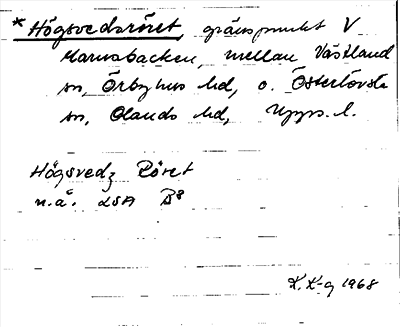 * Högsvedsröret, gränspunkt V
Marusbacken, mellan Västland
sn, Örbyhus hd, o. Österlövsta
sn, Olands hd, Upps. l.
Högsvedz Röret
n.ä. LSA B8
K. K-g 1968